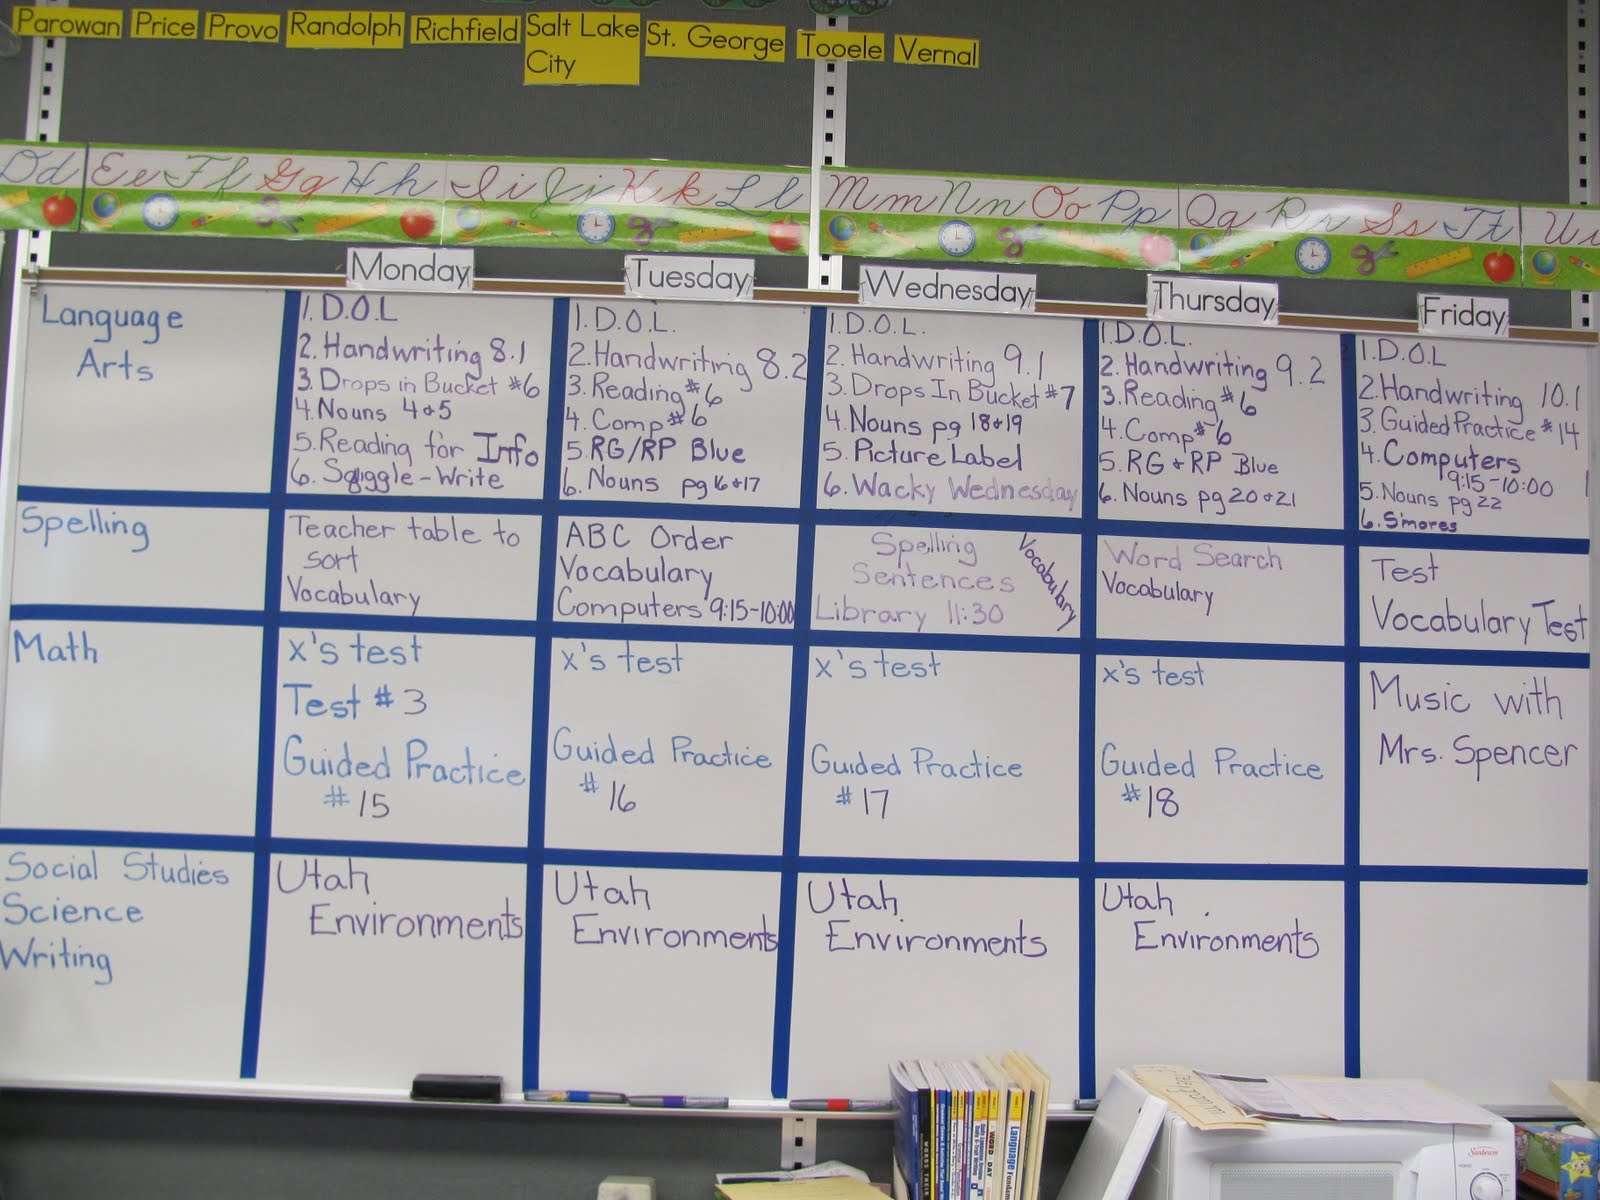 Parowan
Price
Provo
Randolph
Richfield
Salt Lake
City
St. George
Tooele
Vernal
Dd Ee Ff Gg Hh Ii Jj Kk Ll Mm Nn Oo Pp Qq Rr Ss Tt Uu
Monday
Tuesday
Wednesday
Thursday
Friday
Language
Arts
1. D.O.L
2. Handwriting 8.1
3. Drops in Bucket #6
4. Nouns 4+5
5. Reading for Info
6. Squiggle-Write
1. D.O.L.
2. Handwriting 8.2
3. Reading #6
4. Comp #6
5. RG/RP Blue
6. Nouns pg 16+17
1. D.O.L.
2. Handwriting 9.1
3. Drops In Bucket #7
4. Nouns pg 18+19
5. Picture Label
6. Wacky Wednesday
1. D.O.L.
2. Handwriting 9.2
3. Reading #6
4. Comp #6
5. RG + RP Blue
6. Nouns pg 20+21
1. D.O.L
2. Handwriting 10.1
3. Guided Practice #14
4. Computers
9:15-10:00
5. Nouns pg 22
6. S'mores
Spelling
Teacher table to
sort
Vocabulary
ABC Order
Vocabulary
Computers 9:15-10:00
Spelling
Sentences
Library 11:30
Vocabulary
Word Search
Vocabulary
Test
Vocabulary Test
Math
x's test
Test #3
Guided Practice
#15
x's test
Guided Practice
#16
x's test
Guided Practice
#17
x's test
Guided Practice
#18
Music with
Mrs. Spencer
Social Studies
Science
Writing
Utah
Environments
Utah
Environments
Utah
Environments
Utah
Environments
WORD A DAY
Sunbeam